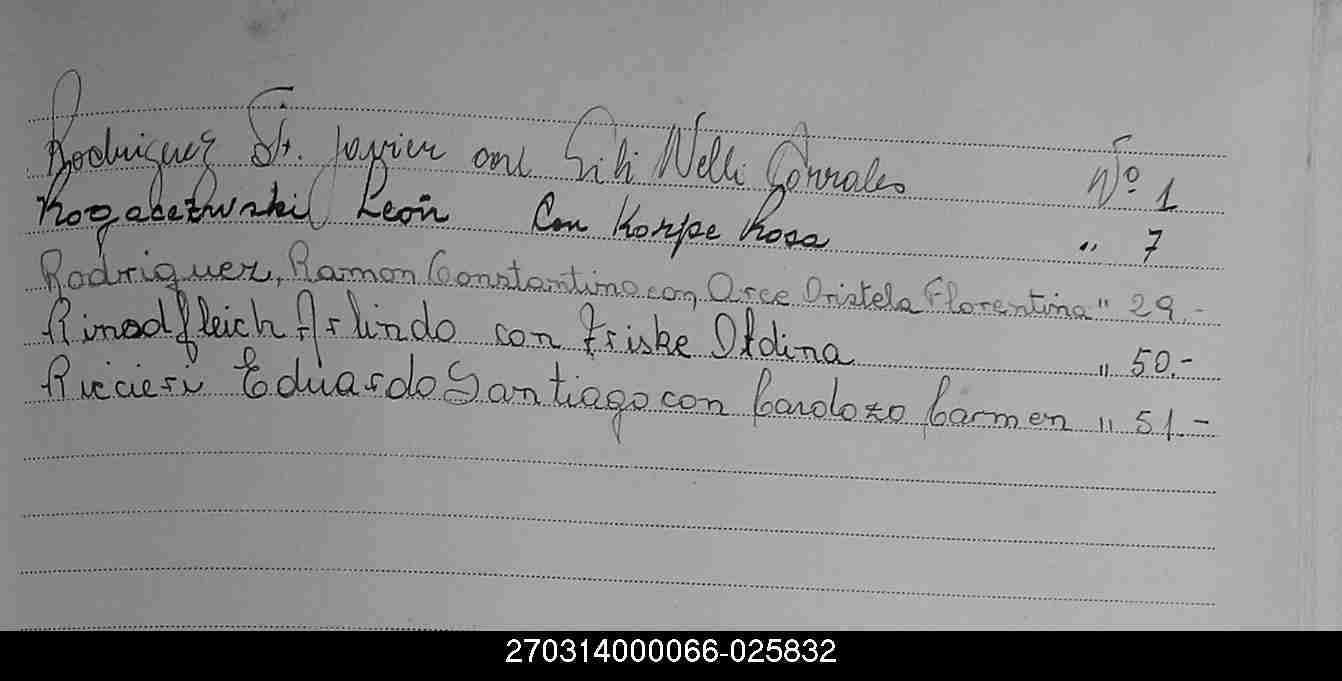 Rodriguez Fr. Javier con Gili Nelli Corrales Nº 1
Rogaczewski León Con Korpe Rosa " 7
Rodriguez, Ramon Constantino con Arce Dristela Florentina " 29.-
Rinodfleich Arlindo con Friske Otdina " 50.-
Riccieri Eduardo Santiago con Cardozo Carmen " 51.-
270314000066-025832